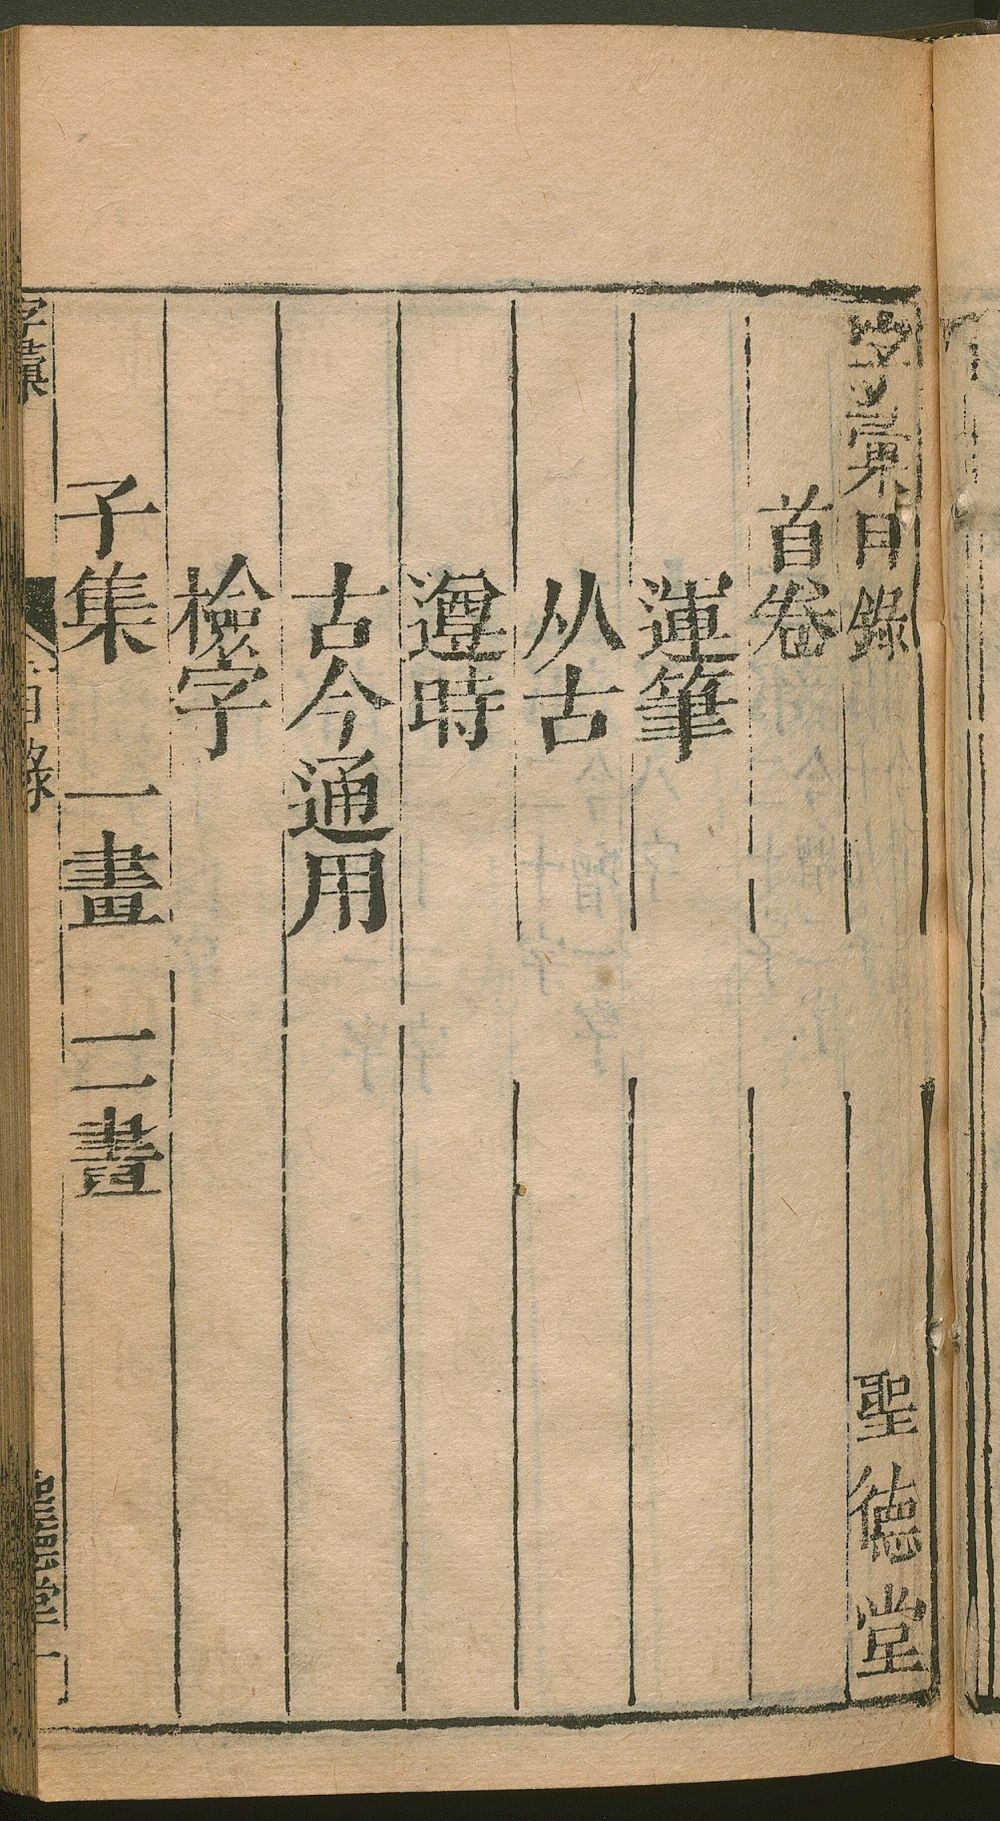 字彙目錄 聖德堂
首卷
運筆
从古
遵時
古今通用
檢字
子集 一畫 二畫
字彙 目錄